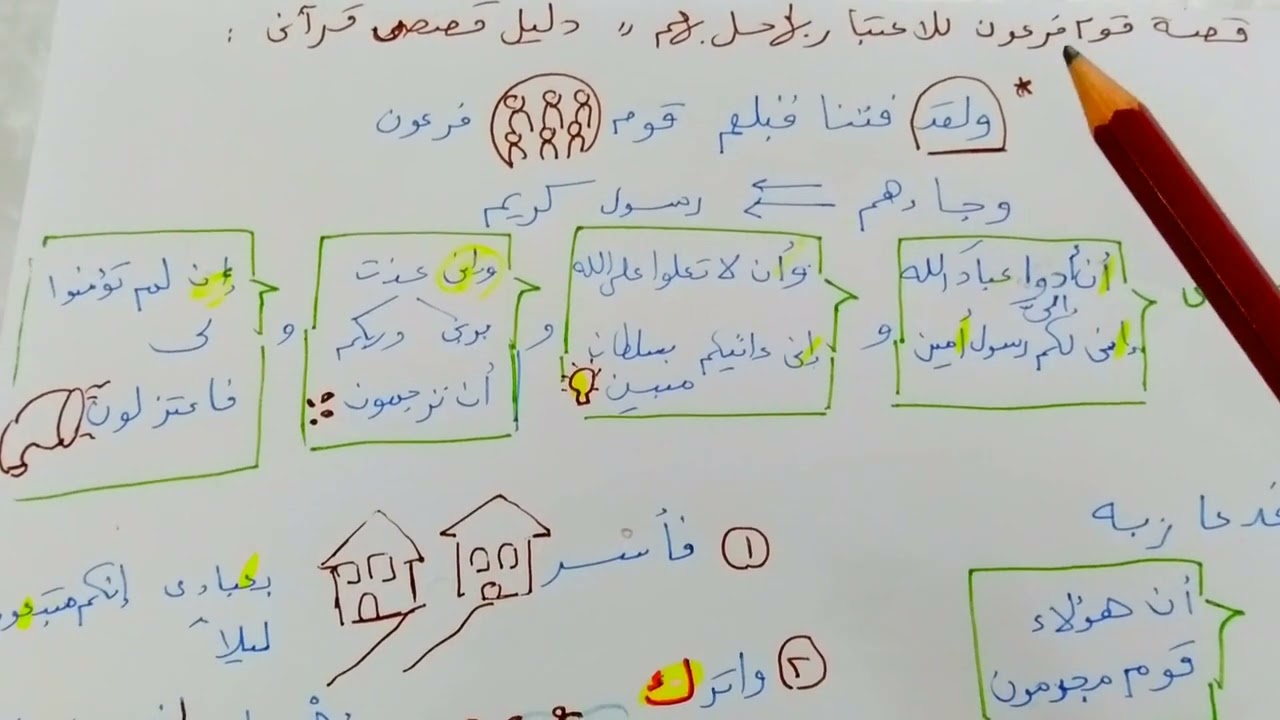 قصة قوم فرعون للاعتبار بما حل بهم " دليل قصصى قرآنى :
* ولقد فتنا قبلهم قوم فرعون
وجاءهم رسول كريم
أن أدوا إلىّ عباد الله
إنى لكم رسول أمين
و
وأن لا تعلوا على الله
إنى ءاتيكم بسلطان
مبين
و
وإنى عذت
بربى وربكم
أن ترجمون
و
وإن لم تؤمنوا
لى
فاعتزلون
فدعا ربه
أن هؤلاء
قوم مجرمون
١ فأسر
بعبادى إنكم متبعو
ليلاً
٢ واترك